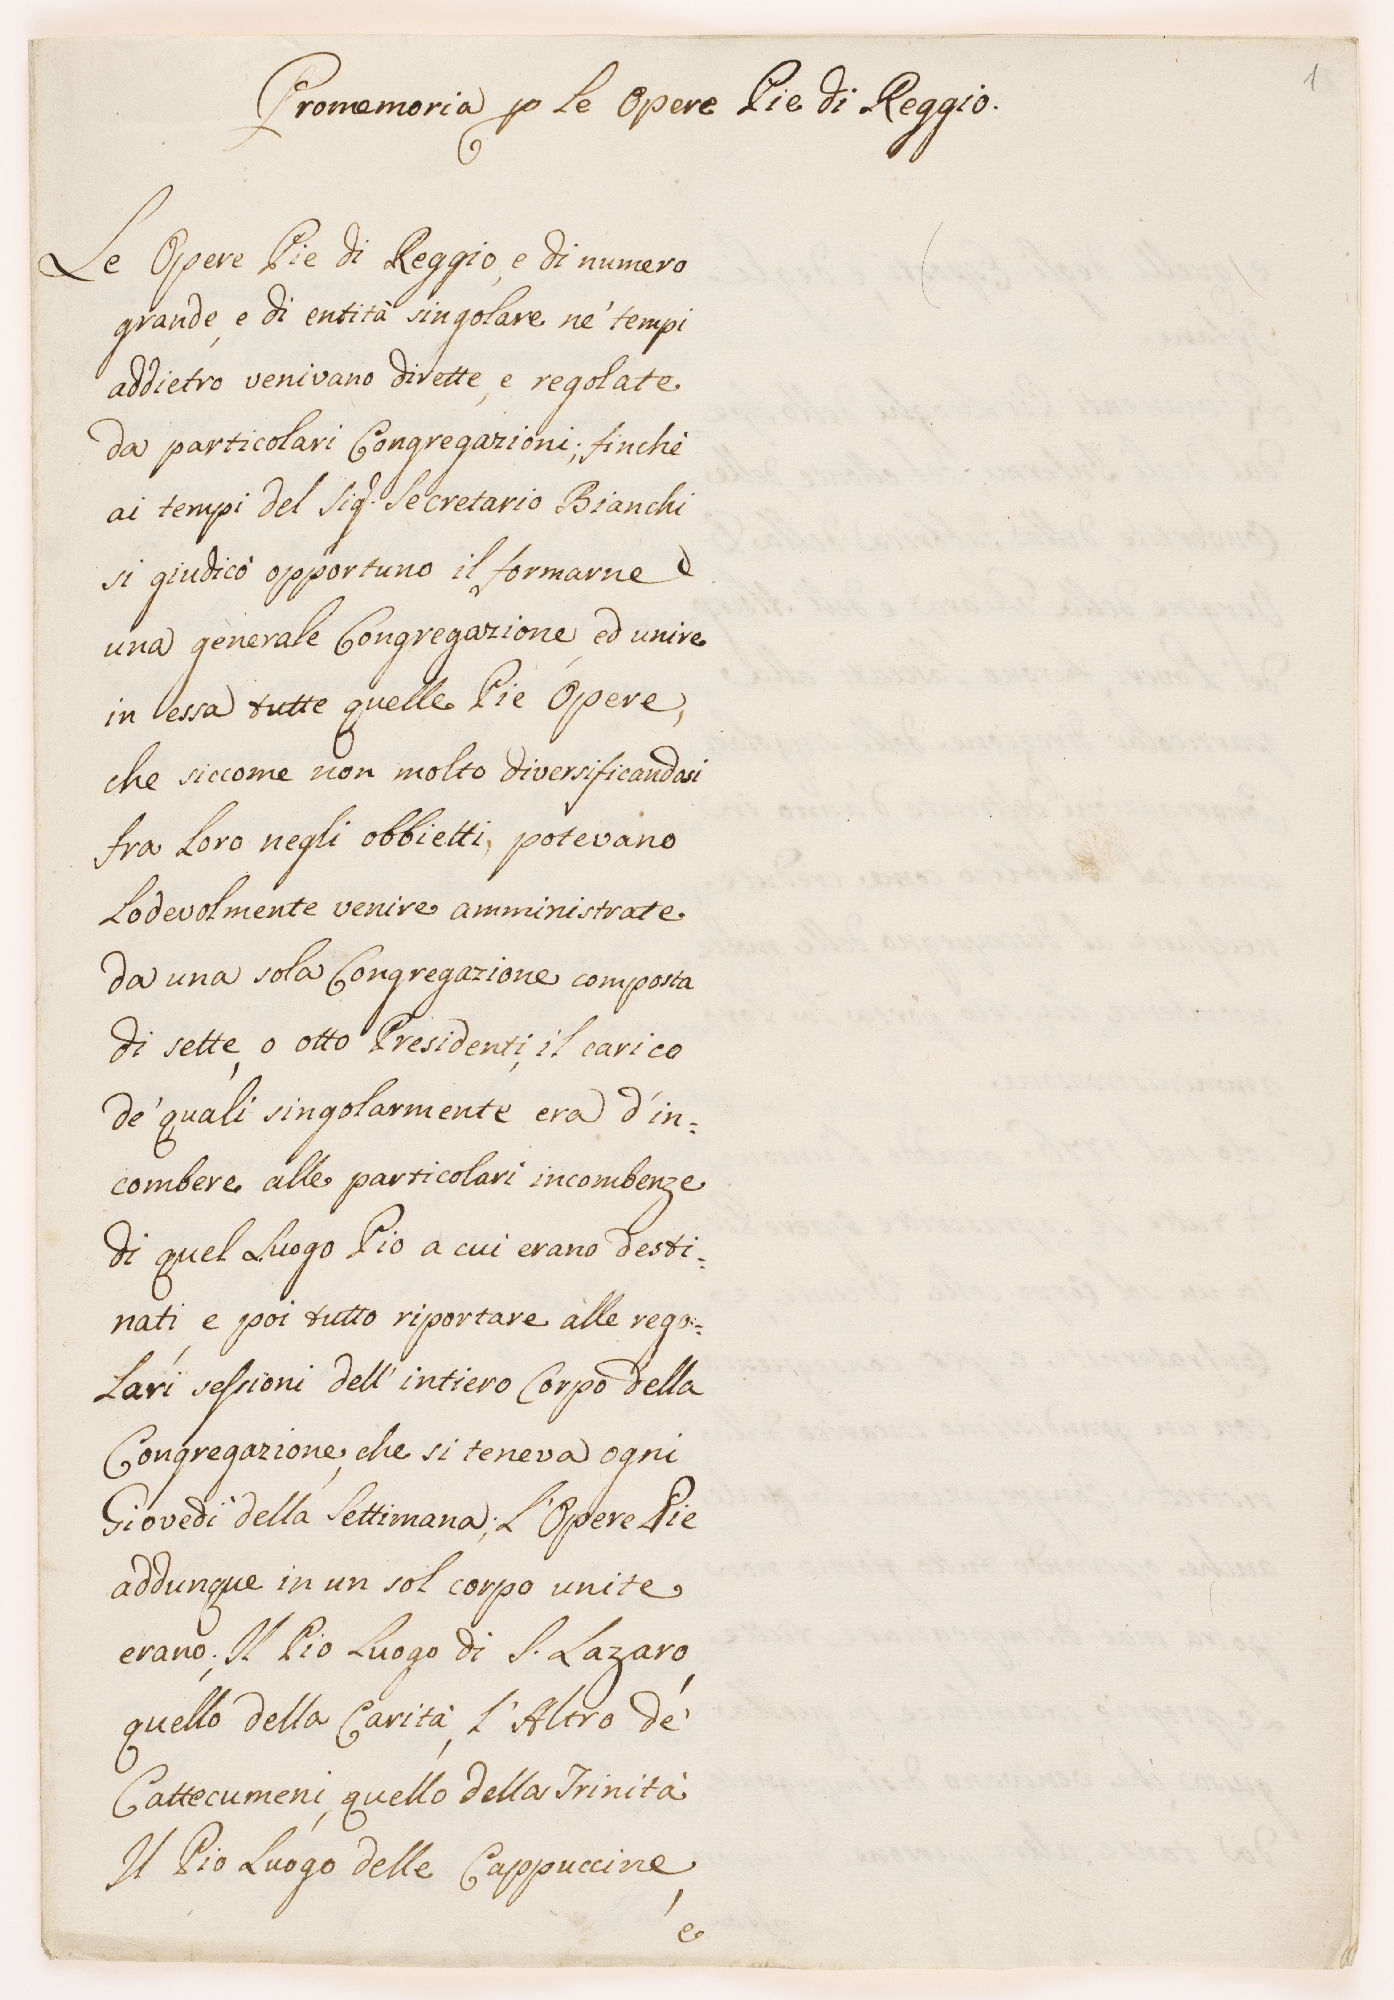 1
Promemoria p le Opere Pie di Reggio.
Le Opere Pie di Reggio, e di numero
grande, e di entità singolare ne' tempi
addietro venivano dirette, e regolate
da particolari Congregazioni; finchè
ai tempi del Sigr. Secretario Bianchi
si giudicò opportuno il formarne
una generale Congregazione, ed unire
in essa tutte quelle Pie Opere,
che siccome non molto diversificandosi
fra Loro negli obbietti, potevano
Lodevolmente venire amministrate
da una sola Congregazione composta
di sette, o otto Presidenti, il carico
de' quali singolarmente era d'in=
combere alle particolari incombenze
di quel Luogo Pio a cui erano desti=
nati, e poi tutto riportare alle rego=
Lari sessioni dell' intiero Corpo della
Congregazione, che si teneva ogni
Giovedì della Settimana; L'Opere Pie
addunque in un sol corpo unite
erano; Il Pio Luogo di S. Lazaro,
quello della Carità, L'Altro de'
Cattecumeni, quello della Trinità
Il Pio Luogo delle Cappuccine,
e